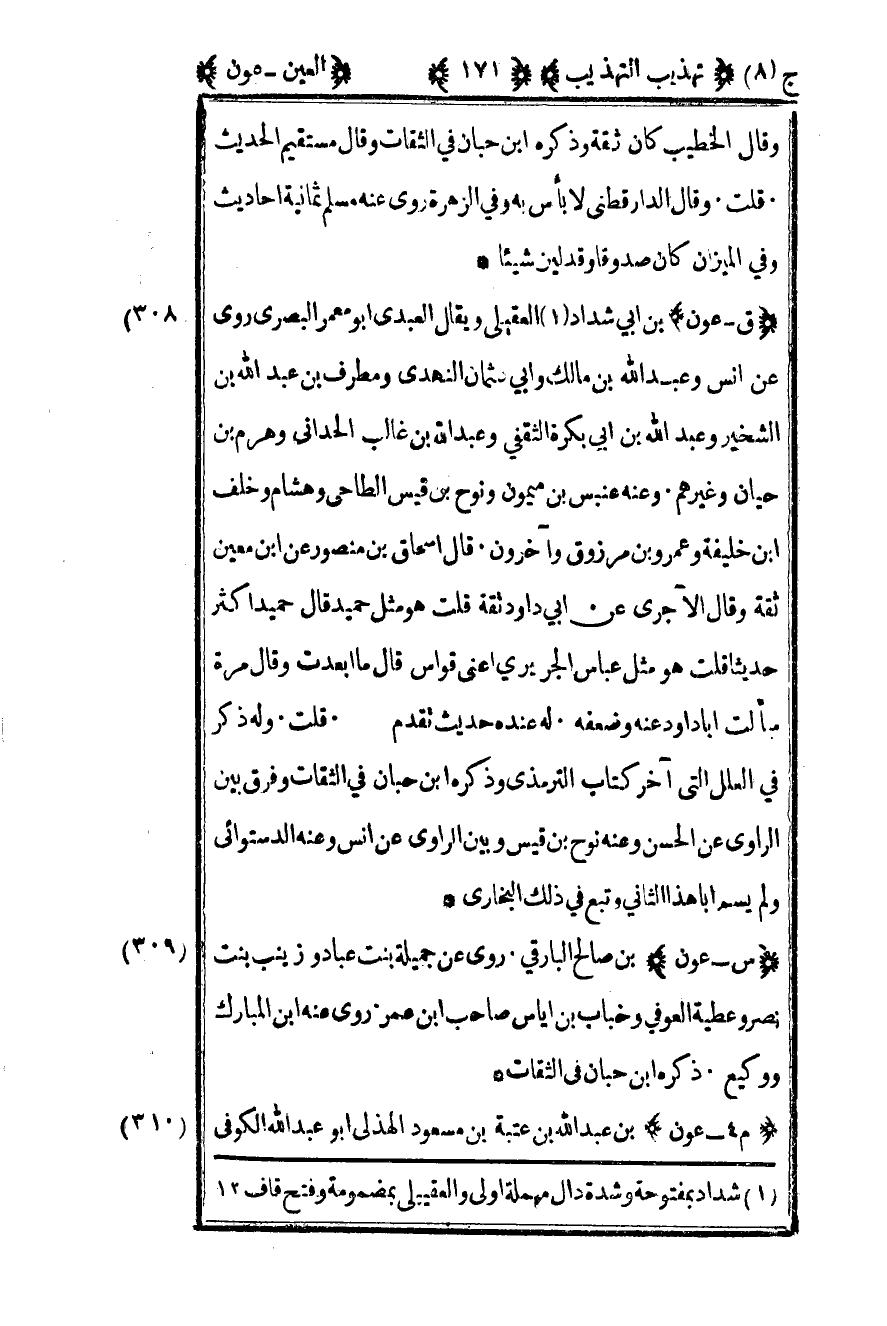 ج (٨) ﴿ تهذيب التهذيب ﴾ ﴿ ١٧١ ﴾ ﴿ العين - عون ﴾
وقال الخطيب كان ثقة وذكره ابن حبان في الثقات وقال مستقيم الحديث
٠ قلت ٠ وقال الدارقطنى لا بأس به وفي الزهرة روى عنه مسلم ثمانية احاديث
وفي الميزان كان صدوقا وقد لين شيئا *
﴿ ق - عون ﴾ بن ابي شداد (١) العقيلي ويقال العبدى ابو معمر البصرى روى (٣٠٨
عن انس وعبد الله بن مالك وابي عثمان النهدى ومطرف بن عبد الله بن
الشخير وعبد الله بن ابي بكرة الثقفي وعبد الله بن غالب الحدانى وهرم بن
حيان وغيرهم ٠ وعنه عنبس بن ميمون ونوح بن قيس الطاحى وهشام وخلف
ابن خليفة وعمرو بن مرزوق وآخرون ٠ قال اسحاق بن منصور عن ابن معين
ثقة وقال الآجرى عن ٠ ابي داود ثقة قلت هو مثل حميد قال حميد اكثر
حديثا قلت هو مثل عباس الجريري اعنى قواس قال ما ابعدت وقال مرة
سألت ابا داود عنه وضعفه ٠ له عنده حديث تقدم ٠ قلت ٠ وله ذكر
في العلل التى آخر كتاب الترمذى وذكره ابن حبان في الثقات وفرق بين
الراوى عن الحسن وعنه نوح بن قيس وبين الراوى عن انس وعنه الدستوائى
ولم يسم ابا هذا الثاني وتبع في ذلك البخارى *
﴿ س - عون ﴾ بن صالح البارقي ٠ روى عن جميلة بنت عباد وزينب بنت (٣٠٩)
نصر وعطية العوفي وخباب بن اياس صاحب ابن عمر ٠ روى عنه ابن المبارك
ووكيع ٠ ذكره ابن حبان فى الثقات *
﴿ م ٤ - عون ﴾ بن عبد الله بن عتبة بن مسعود الهذلى ابو عبد الله الكوفى (٣١٠)
(١) شداد بمفتوحة وشدة دال مهملة اولى والعقيلى بمضمومة وفتح قاف ١٢